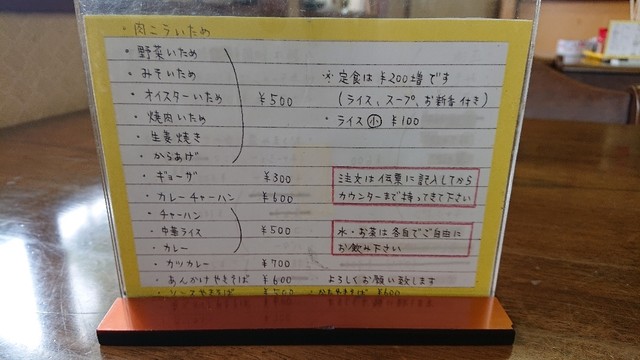 ・肉こういため
・野菜いため
・みそいため
・オイスターいため ¥500
・焼肉いため
・生姜焼き
・からあげ
・ギョーザ ¥300
・カレーチャーハン ¥600
・チャーハン
・中華ライス ¥500
・カレー
・カツカレー ¥700
・あんかけやきそば ¥600
・ソースやきそば ¥500 ・かたやきそば ¥600
※定食は¥200増です
(ライス、スープ、お新香付き)
・ライス小 ¥100
注文は伝票に記入してから
カウンターまで持ってきて下さい
水・お茶は各自でご自由に
お飲み下さい
よろしくお願い致します